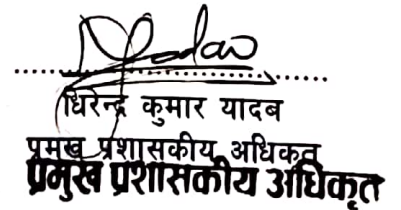 Yadav
धिरेन्द्र कुमार यादब
प्रमुख प्रशासकीय अधिकृत
प्रमुख प्रशासकीय अधिकृत